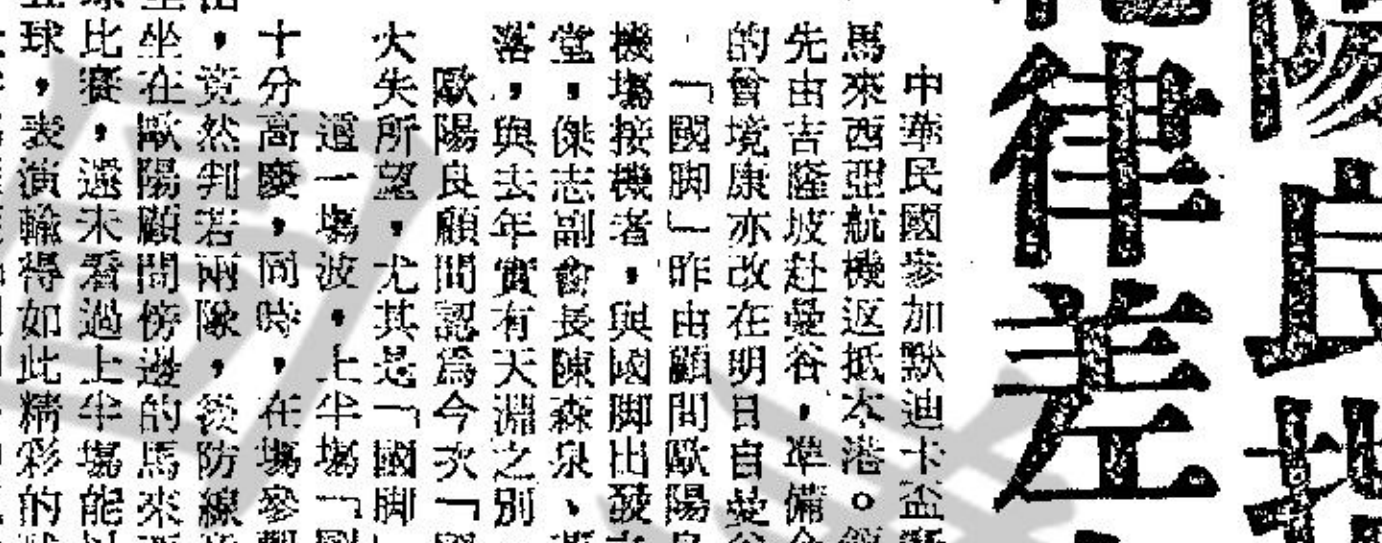 陽良
律差
中華民國參加默迪卡盃
馬來西亞航機返抵本港。
先由吉隆坡赴曼谷，準備
的曾境康亦改在明日自曼
，「國脚」昨由顧問歐陽
機塲接機者，與國脚出發
堂，傑志副會長陳森泉、
落，與去年實有天淵之別
歐陽良顧問認爲今次「
大失所望，尤其是「國脚
這一塲波，上半塲「
十分高慶，同時，在塲參
，竟然判若兩隊，後防線
坐在歐陽顧問傍邊的馬來
比賽，還未看過上半塲能
球，表演輸得如此精彩的